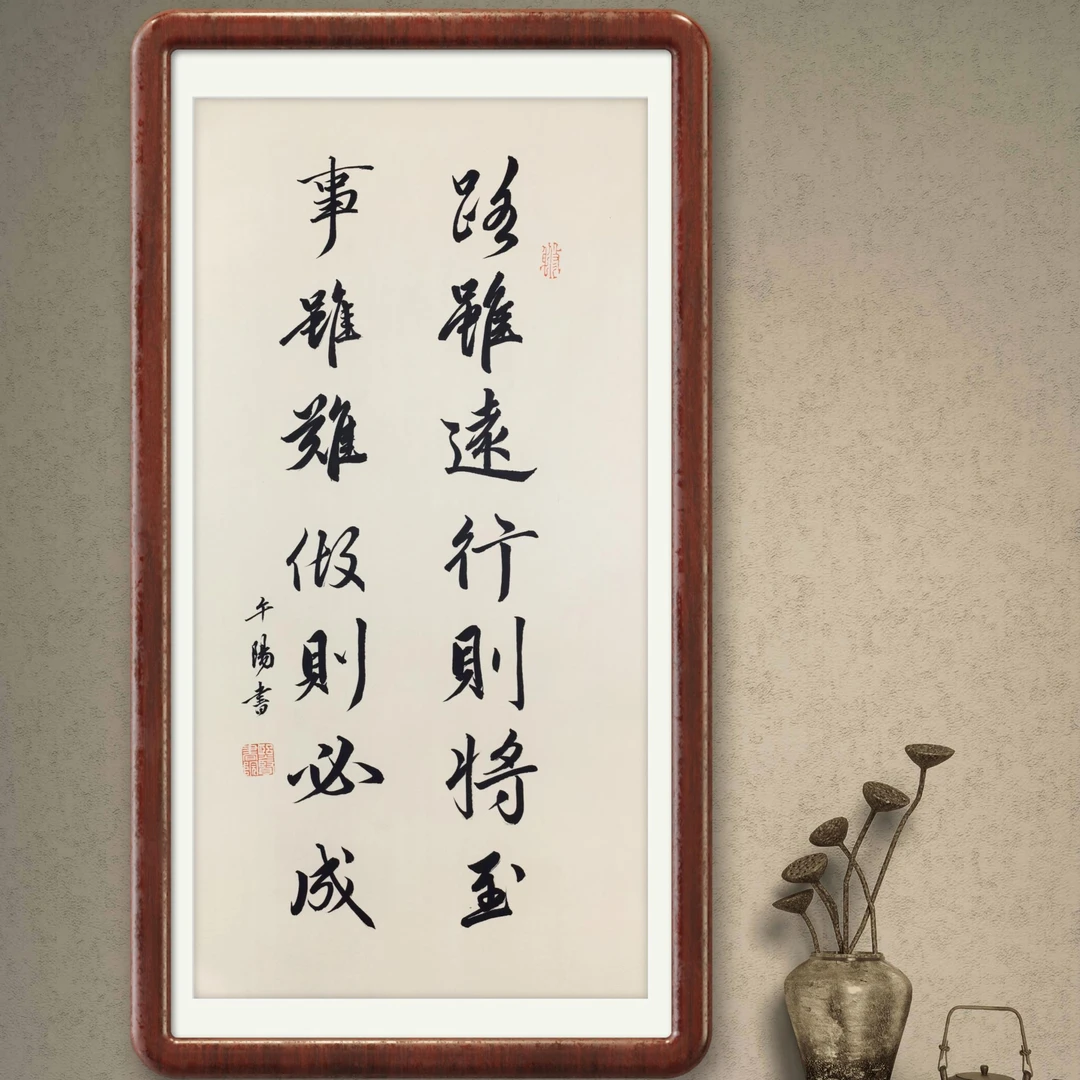 路雖遠行則將至
事雖難做則必成
午陽書